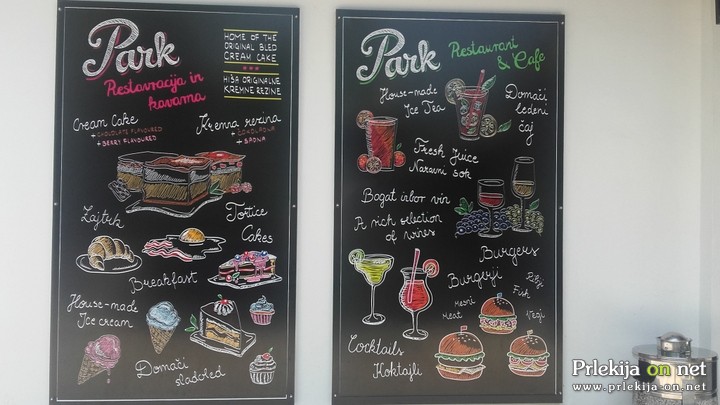 Park
Restavracija in
kavarna
HOME OF THE
ORIGINAL BLED
CREAM CAKE
HIŠA ORIGINALNE
KREMNE REZINE
Cream Cake
+ CHOCOLATE FLAVOURED
+ BERRY FLAVOURED
Kremna rezina
+ ČOKOLADNA
+ SADNA
Zajtrk
Tortice
Cakes
Breakfast
House-made
Ice cream
Domači
sladoled
Park
Restaurant
& Cafe
House-made
Ice Tea
Domači
ledeni
čaj
Fresh Juice
Naravni sok
Bogat izbor vin
A rich selection
of wines
Burgers
Burgerji
Mesni
Meat
Ribji
Fish
Vegi
Cocktails
Koktajli
Prlekija on net
www.prlekija-on.net